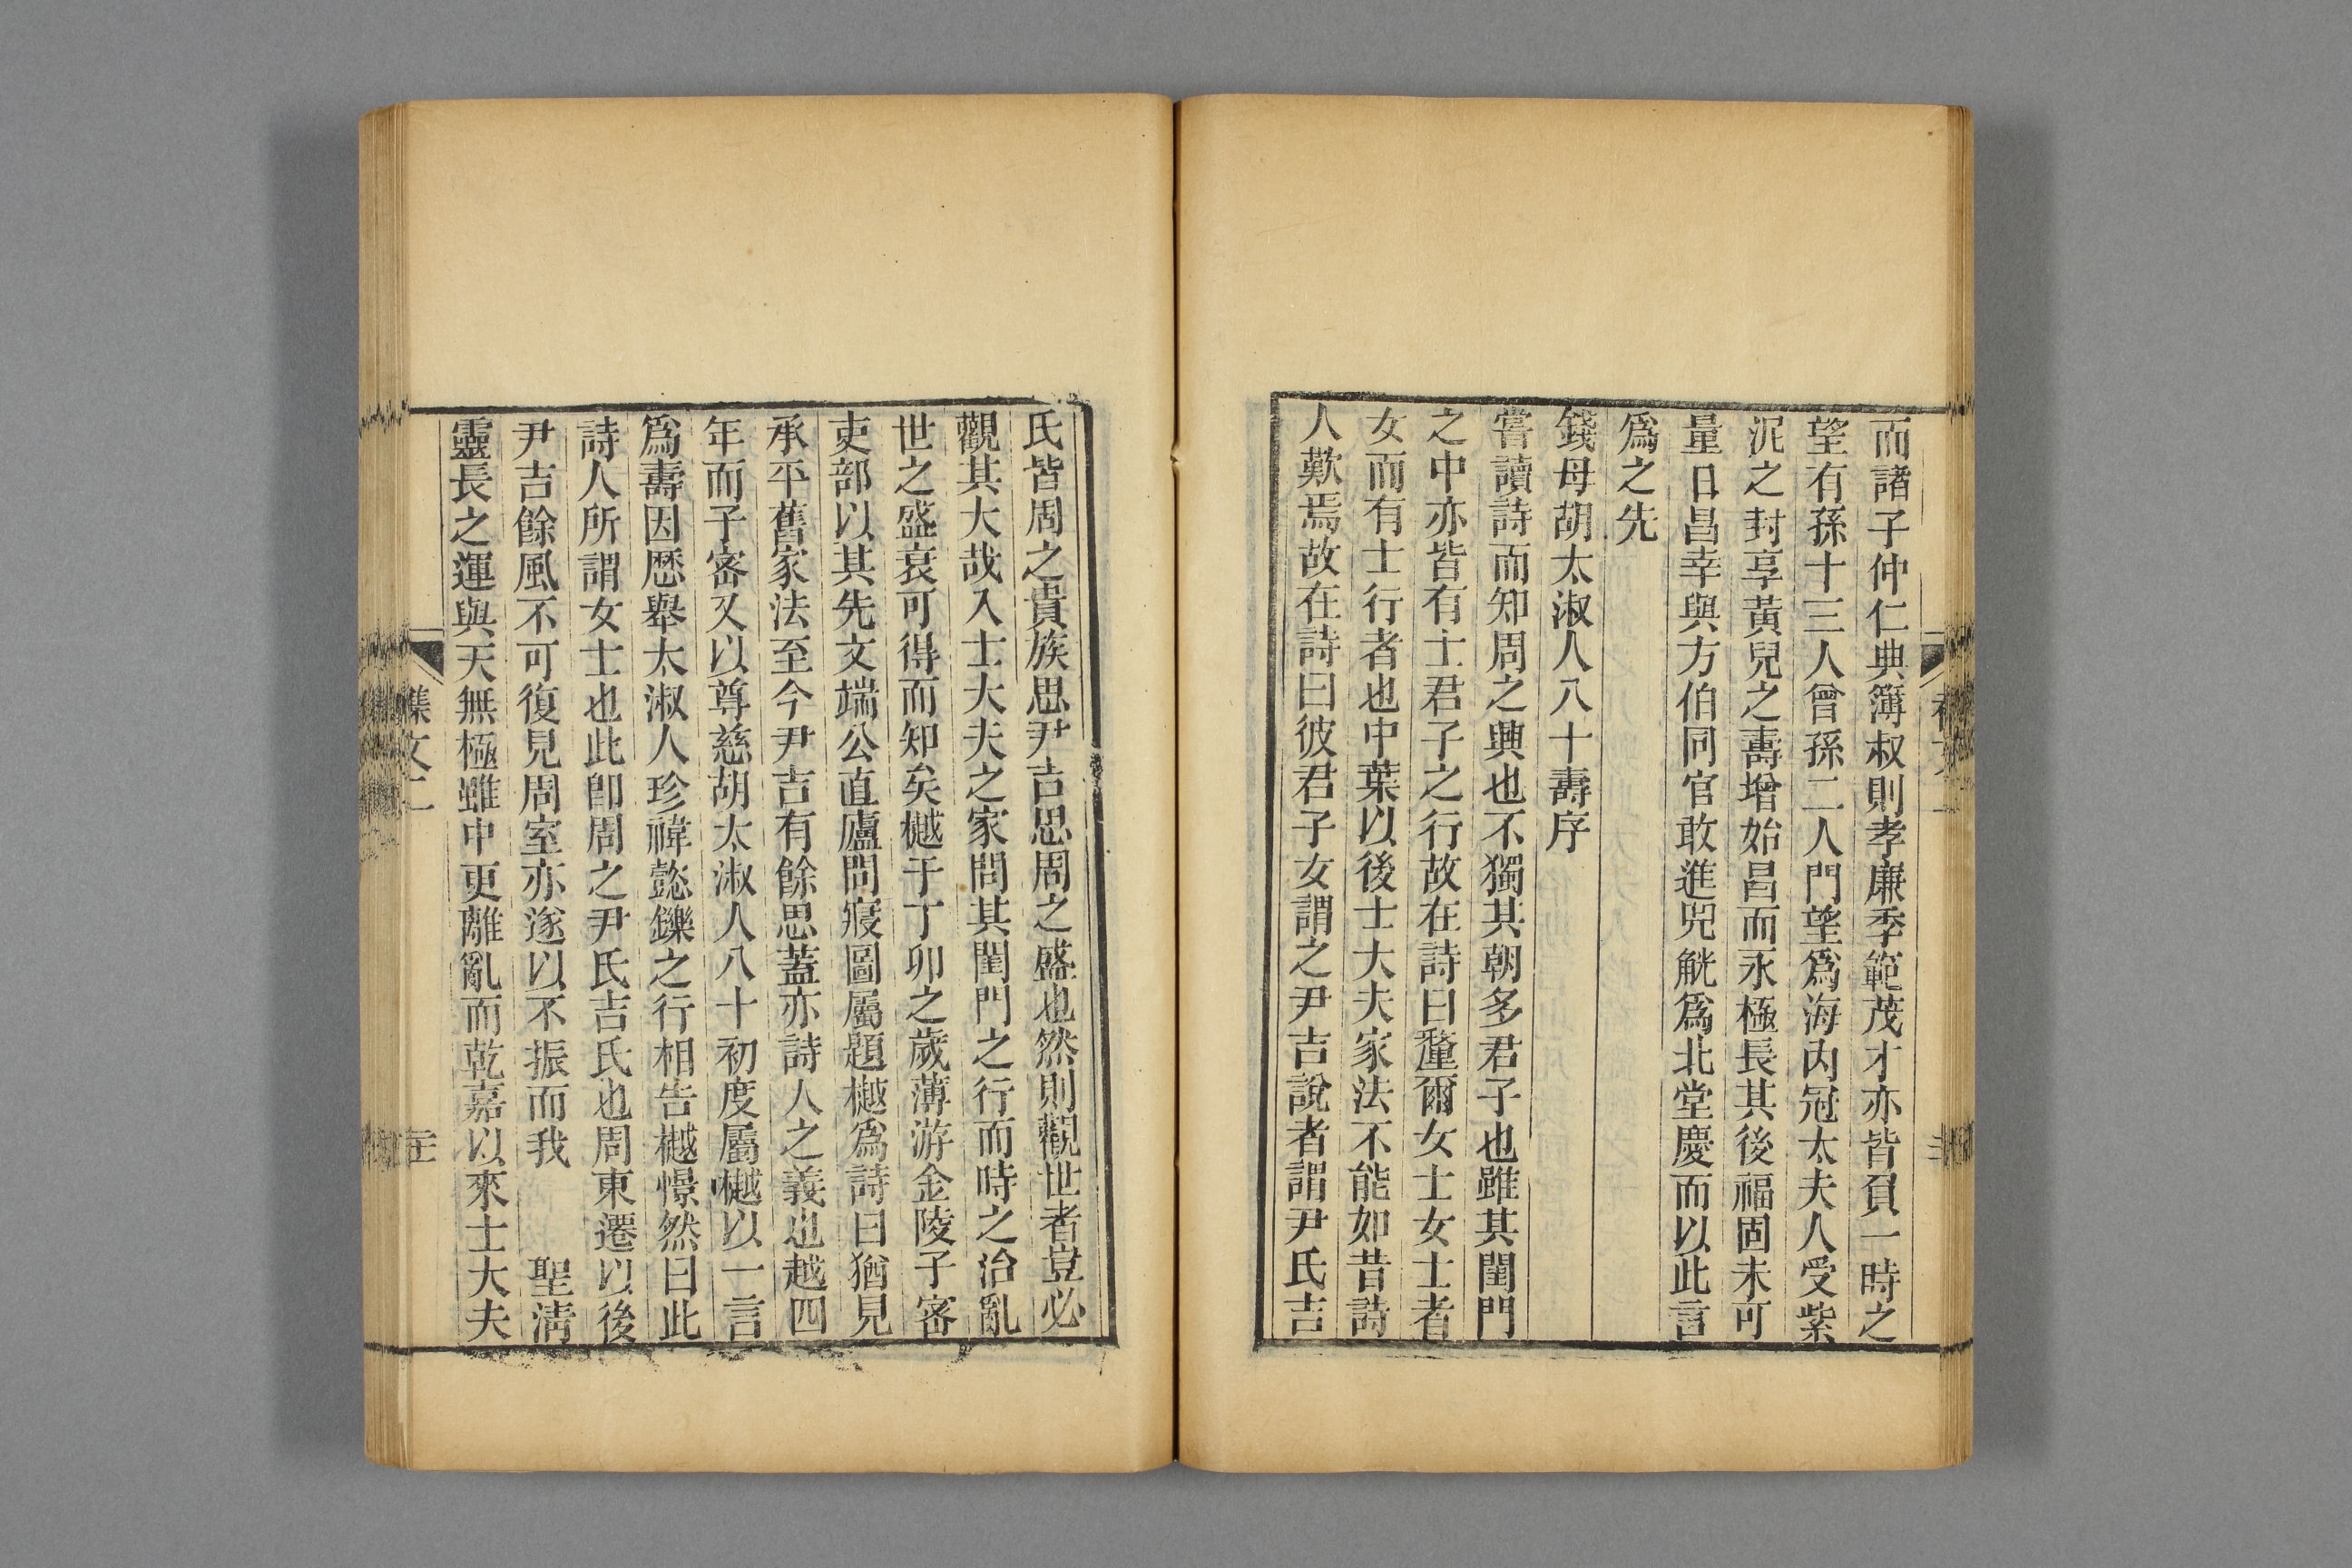 而諸子仲仁典簿叔則孝廉季範茂才亦皆負一時之
望有孫十三人曾孫二人門望爲海内冠太夫人受紫
泥之封享黃兒之壽增始昌而永極長其後福固未可
量日昌幸與方伯同官敢進兕觥爲北堂慶而以此言
爲之先
錢母胡太淑人八十壽序
嘗讀詩而知周之興也不獨其朝多君子也雖其閨門
之中亦皆有士君子之行故在詩曰釐爾女士女士者
女而有士行者也中葉以後士大夫家法不能如昔詩
人歎焉故在詩曰彼君子女謂之尹吉說者謂尹氏吉
氏皆周之貴族思尹吉思周之盛也然則觀世者豈必
觀其大哉入士大夫之家問其閨門之行而時之治亂
世之盛衰可得而知矣樾于丁卯之歲薄游金陵子密
吏部以其先文端公直廬問寢圖屬題樾爲詩曰猶見
承平舊家法至今尹吉有餘思蓋亦詩人之義也越四
年而子密又以尊慈胡太淑人八十初度屬樾以一言
爲壽因歷舉太淑人珍褘懿鑠之行相告樾憬然曰此
詩人所謂女士也此卽周之尹氏吉氏也周東遷以後
尹吉餘風不可復見周室亦遂以不振而我 聖淸
靈長之運與天無極雖中更離亂而乾嘉以來士大夫
集文二